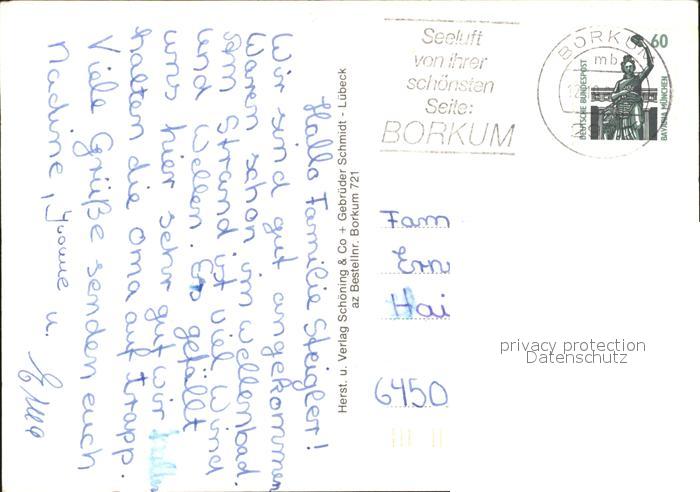 Hallo Familie Steigler!
Wir sind gut angekommen
waren schon im wellenbad.
Am Strand ist viel Wind
und Wellen. Es gefällt
uns hier sehr gut wir
halten die Oma auf trapp.
Viele Grüße senden euch
Nadine, Yvonne u.
Herst. u. Verlag Schöning & Co + Gebrüder Schmidt - Lübeck
az Bestellnr. Borkum 721
Seeluft
von Ihrer
schönsten
Seite:
BORKUM
BORKUM
mb
60
DEUTSCHE BUNDESPOST
BAVARIA MÜNCHEN
Fam
Ern
Hai
6450
privacy protection
Datenschutz